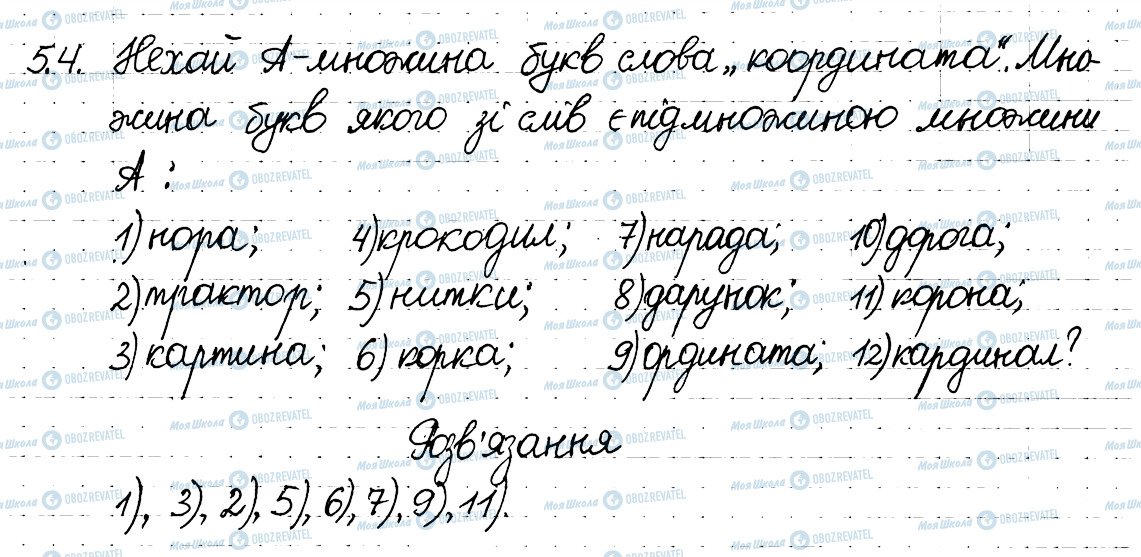 5.4. Нехай А-множина букв слова „координата". Мно-
жина букв якого зі слів є підмножиною множини
А :
1) нора; 4) крокодил; 7) нарада; 10) дорога;
2) трактор; 5) нитки; 8) дарунок; 11) корона;
3) картина; 6) корка; 9) ордината; 12) кардинал?
Розв'язання
1), 3), 2), 5), 6), 7), 9), 11).